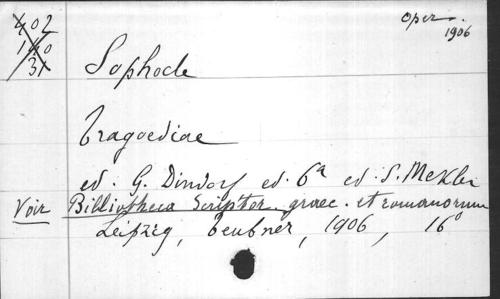 402
140
31
oper.
1906
Sophocle
Tragoediae
ed. G. Dindorf ed. 6a ed. S. Mekler
Voir Bibliotheca Scriptor. graec. et romanorum
Leipzig, Teubner, 1906, 16o